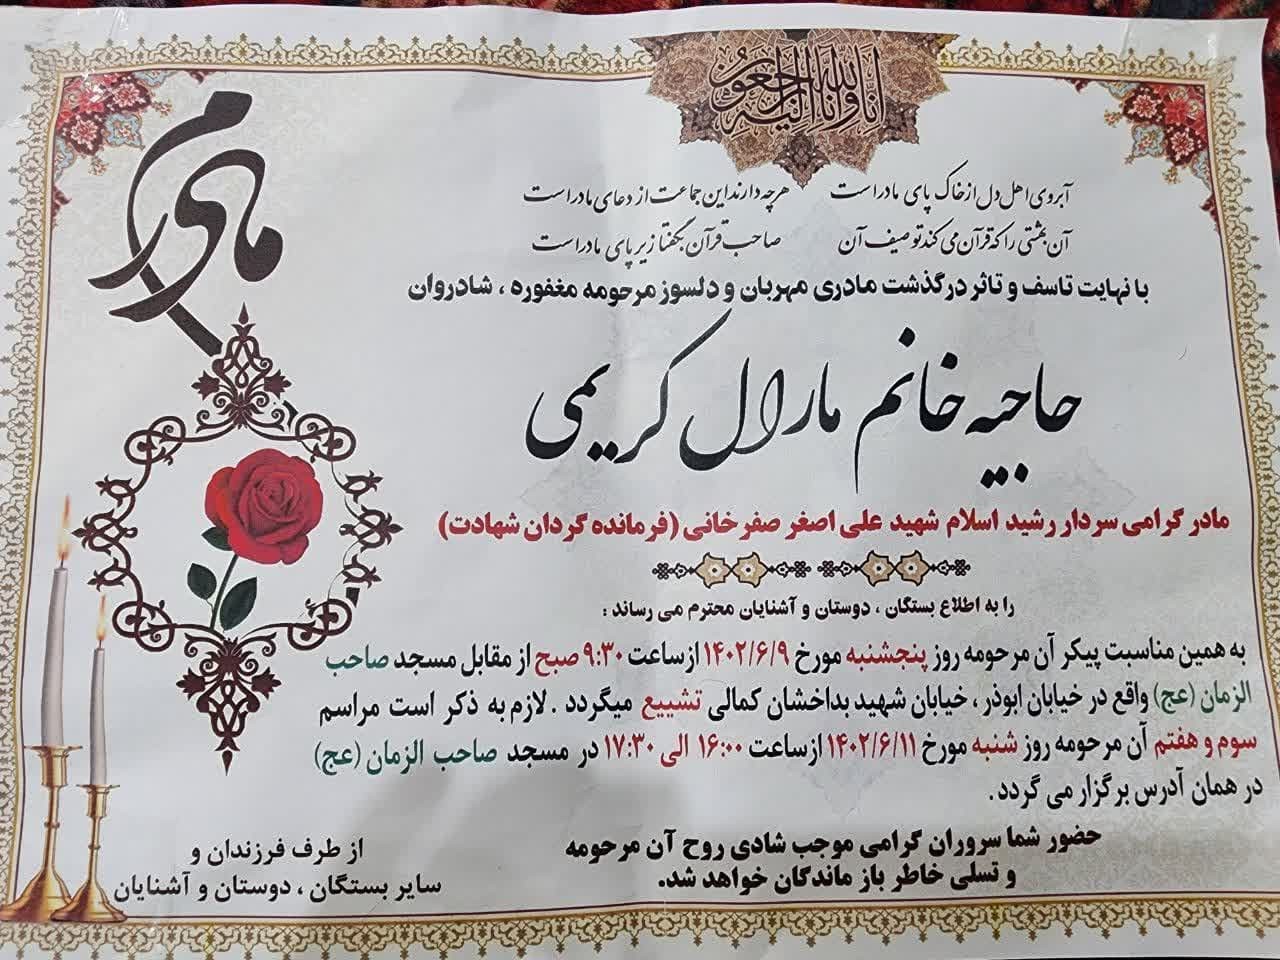 انا لله و انا الیه راجعون
مادرم
آبروی اهل دل از خاک پای مادر است هرچه دارند این جماعت از دعای مادر است
آن بهشتی را که قرآن می کند توصیف آن صاحب قرآن بگفتا زیر پای مادر است
با نهایت تاسف و تاثر درگذشت مادری مهربان و دلسوز مرحومه مغفوره ، شادروان
حاجیه خانم مارال کریمی
مادر گرامی سردار رشید اسلام شهید علی اصغر صفرخانی (فرمانده گردان شهادت)
را به اطلاع بستگان ، دوستان و آشنایان محترم می رساند :
به همین مناسبت پیکر آن مرحومه روز پنجشنبه مورخ ۱۴۰۲/۶/۹ ازساعت ۹:۳۰ صبح از مقابل مسجد صاحب
الزمان (عج) واقع در خیابان ابوذر ، خیابان شهید بداخشان کمالی تشییع میگردد . لازم به ذکر است مراسم
سوم و هفتم آن مرحومه روز شنبه مورخ ۱۴۰۲/۶/۱۱ ازساعت ۱۶:۰۰ الی ۱۷:۳۰ در مسجد صاحب الزمان (عج)
در همان آدرس برگزار می گردد .
حضور شما سروران گرامی موجب شادی روح آن مرحومه
و تسلی خاطر باز ماندگان خواهد شد.
از طرف فرزندان و
سایر بستگان ، دوستان و آشنایان